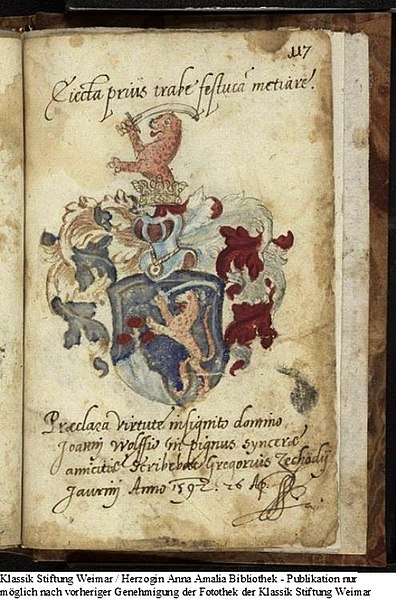 117
Eiecta prius trabe festucā metiare.
Præclara virtute insignito domino
Joanni Wolffio in pignus synceræ
amicitiæ scribebat Gregorius Zechödÿ
Jaurinj Anno 1592. 26 Ap.
Klassik Stiftung Weimar / Herzogin Anna Amalia Bibliothek - Publikation nur
möglich nach vorheriger Genehmigung der Fotothek der Klassik Stiftung Weimar